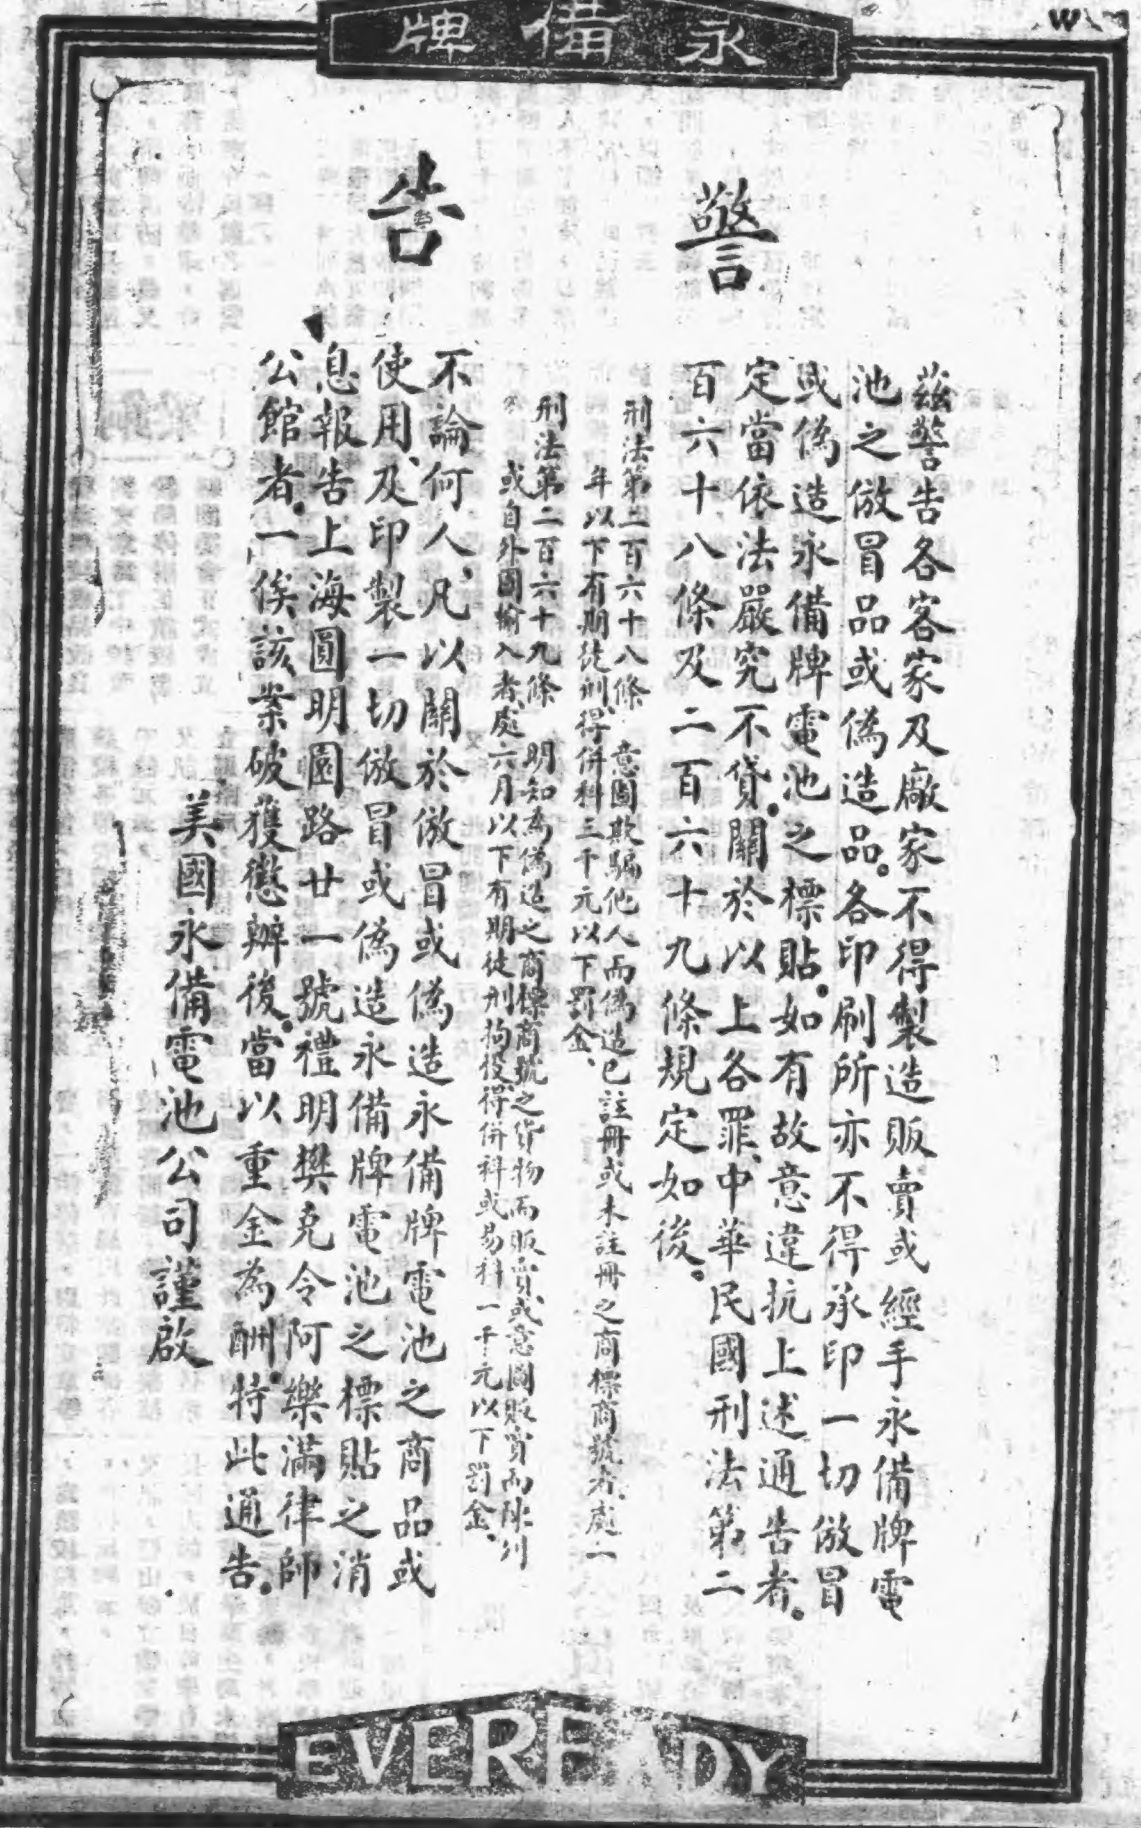 永備牌
警告
茲警告各客家及廠家不得製造販賣或經手永備牌電
池之倣冒品或偽造品。各印刷所亦不得承印一切倣冒
或偽造永備牌電池之標貼。如有故意違抗上述通告者。
定當依法嚴究不貸。關於以上各罪、中華民國刑法第二
百六十八條及二百六十九條規定如後。
刑法第二百六十八條 意圖欺騙他人而偽造已註冊或未註冊之商標商號者、處二
年以下有期徒刑、得併科三千元以下罰金、
刑法第二百六十九條 明知為偽造之商標商號之貨物而販賣、或意圖販賣而陳列
或自外國輸入者、處六月以下有期徒刑拘役得併科或易科一千元以下罰金、
不論何人、凡以關於倣冒或偽造永備牌電池之商品或
使用、及印製一切倣冒或偽造永備牌電池之標貼之消
息報告上海圓明園路廿一號禮明樊克令阿樂滿律師
公館者。一俟該案破獲懲辦後。當以重金為酬。特此通告。
美國永備電池公司謹啟
EVEREADY